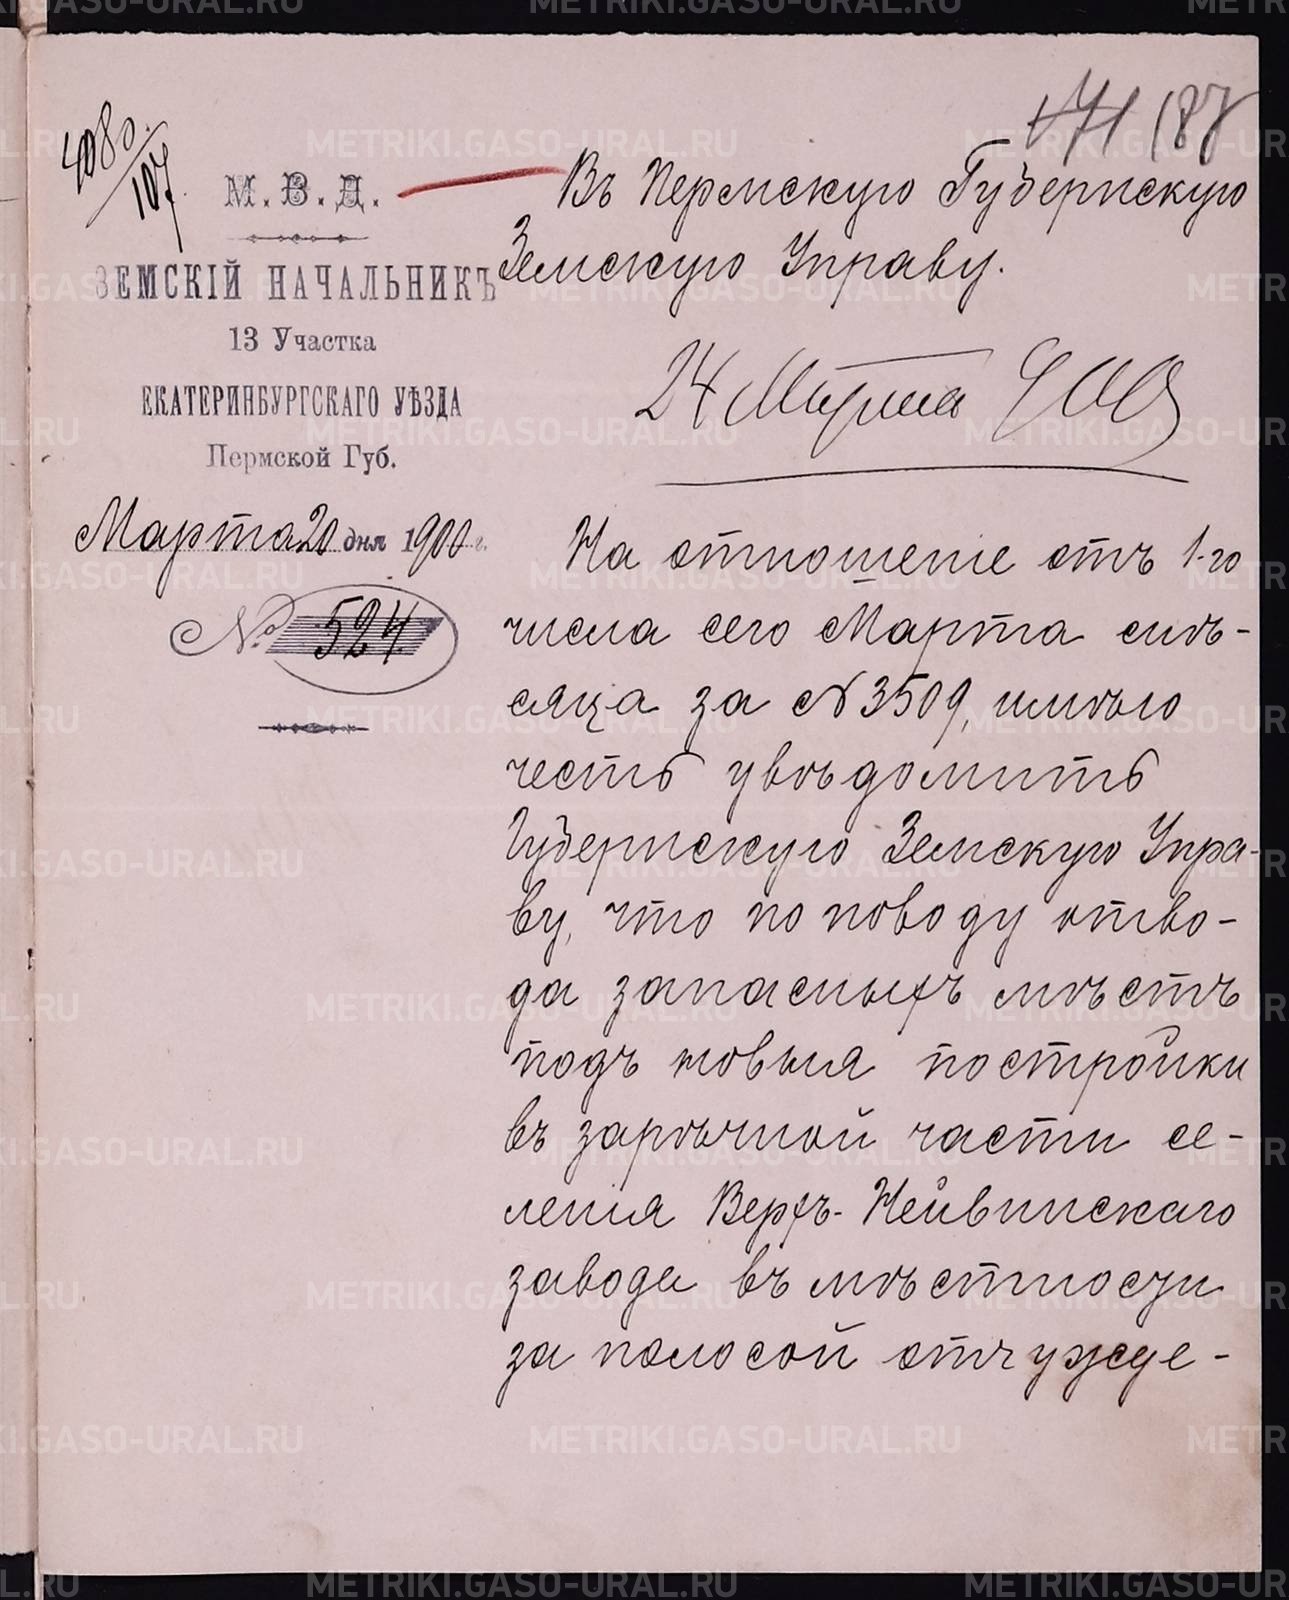 4080/107.
187
М. В. Д.
ЗЕМСКІЙ НАЧАЛЬНИКЪ
13 Участка
ЕКАТЕРИНБУРГСКАГО УѢЗДА
Пермской Губ.
Марта 20 дня 1900 г.
№ 524.
Въ Пермскую Губернскую
Земскую Управу.
24 Марта 900
На отношеніе отъ 1-го
числа сего Марта мѣ-
сяца за № 3509, имѣю
честь увѣдомить
Губернскую Земскую Упра-
ву, что по поводу отво-
да запасныхъ мѣстъ
подъ новыя постройки
въ зарѣчной части се-
ленія Верхъ-Нейвинскаго
завода въ мѣстности
за полосой отчужде-
METRIKI.GASO-URAL.RU